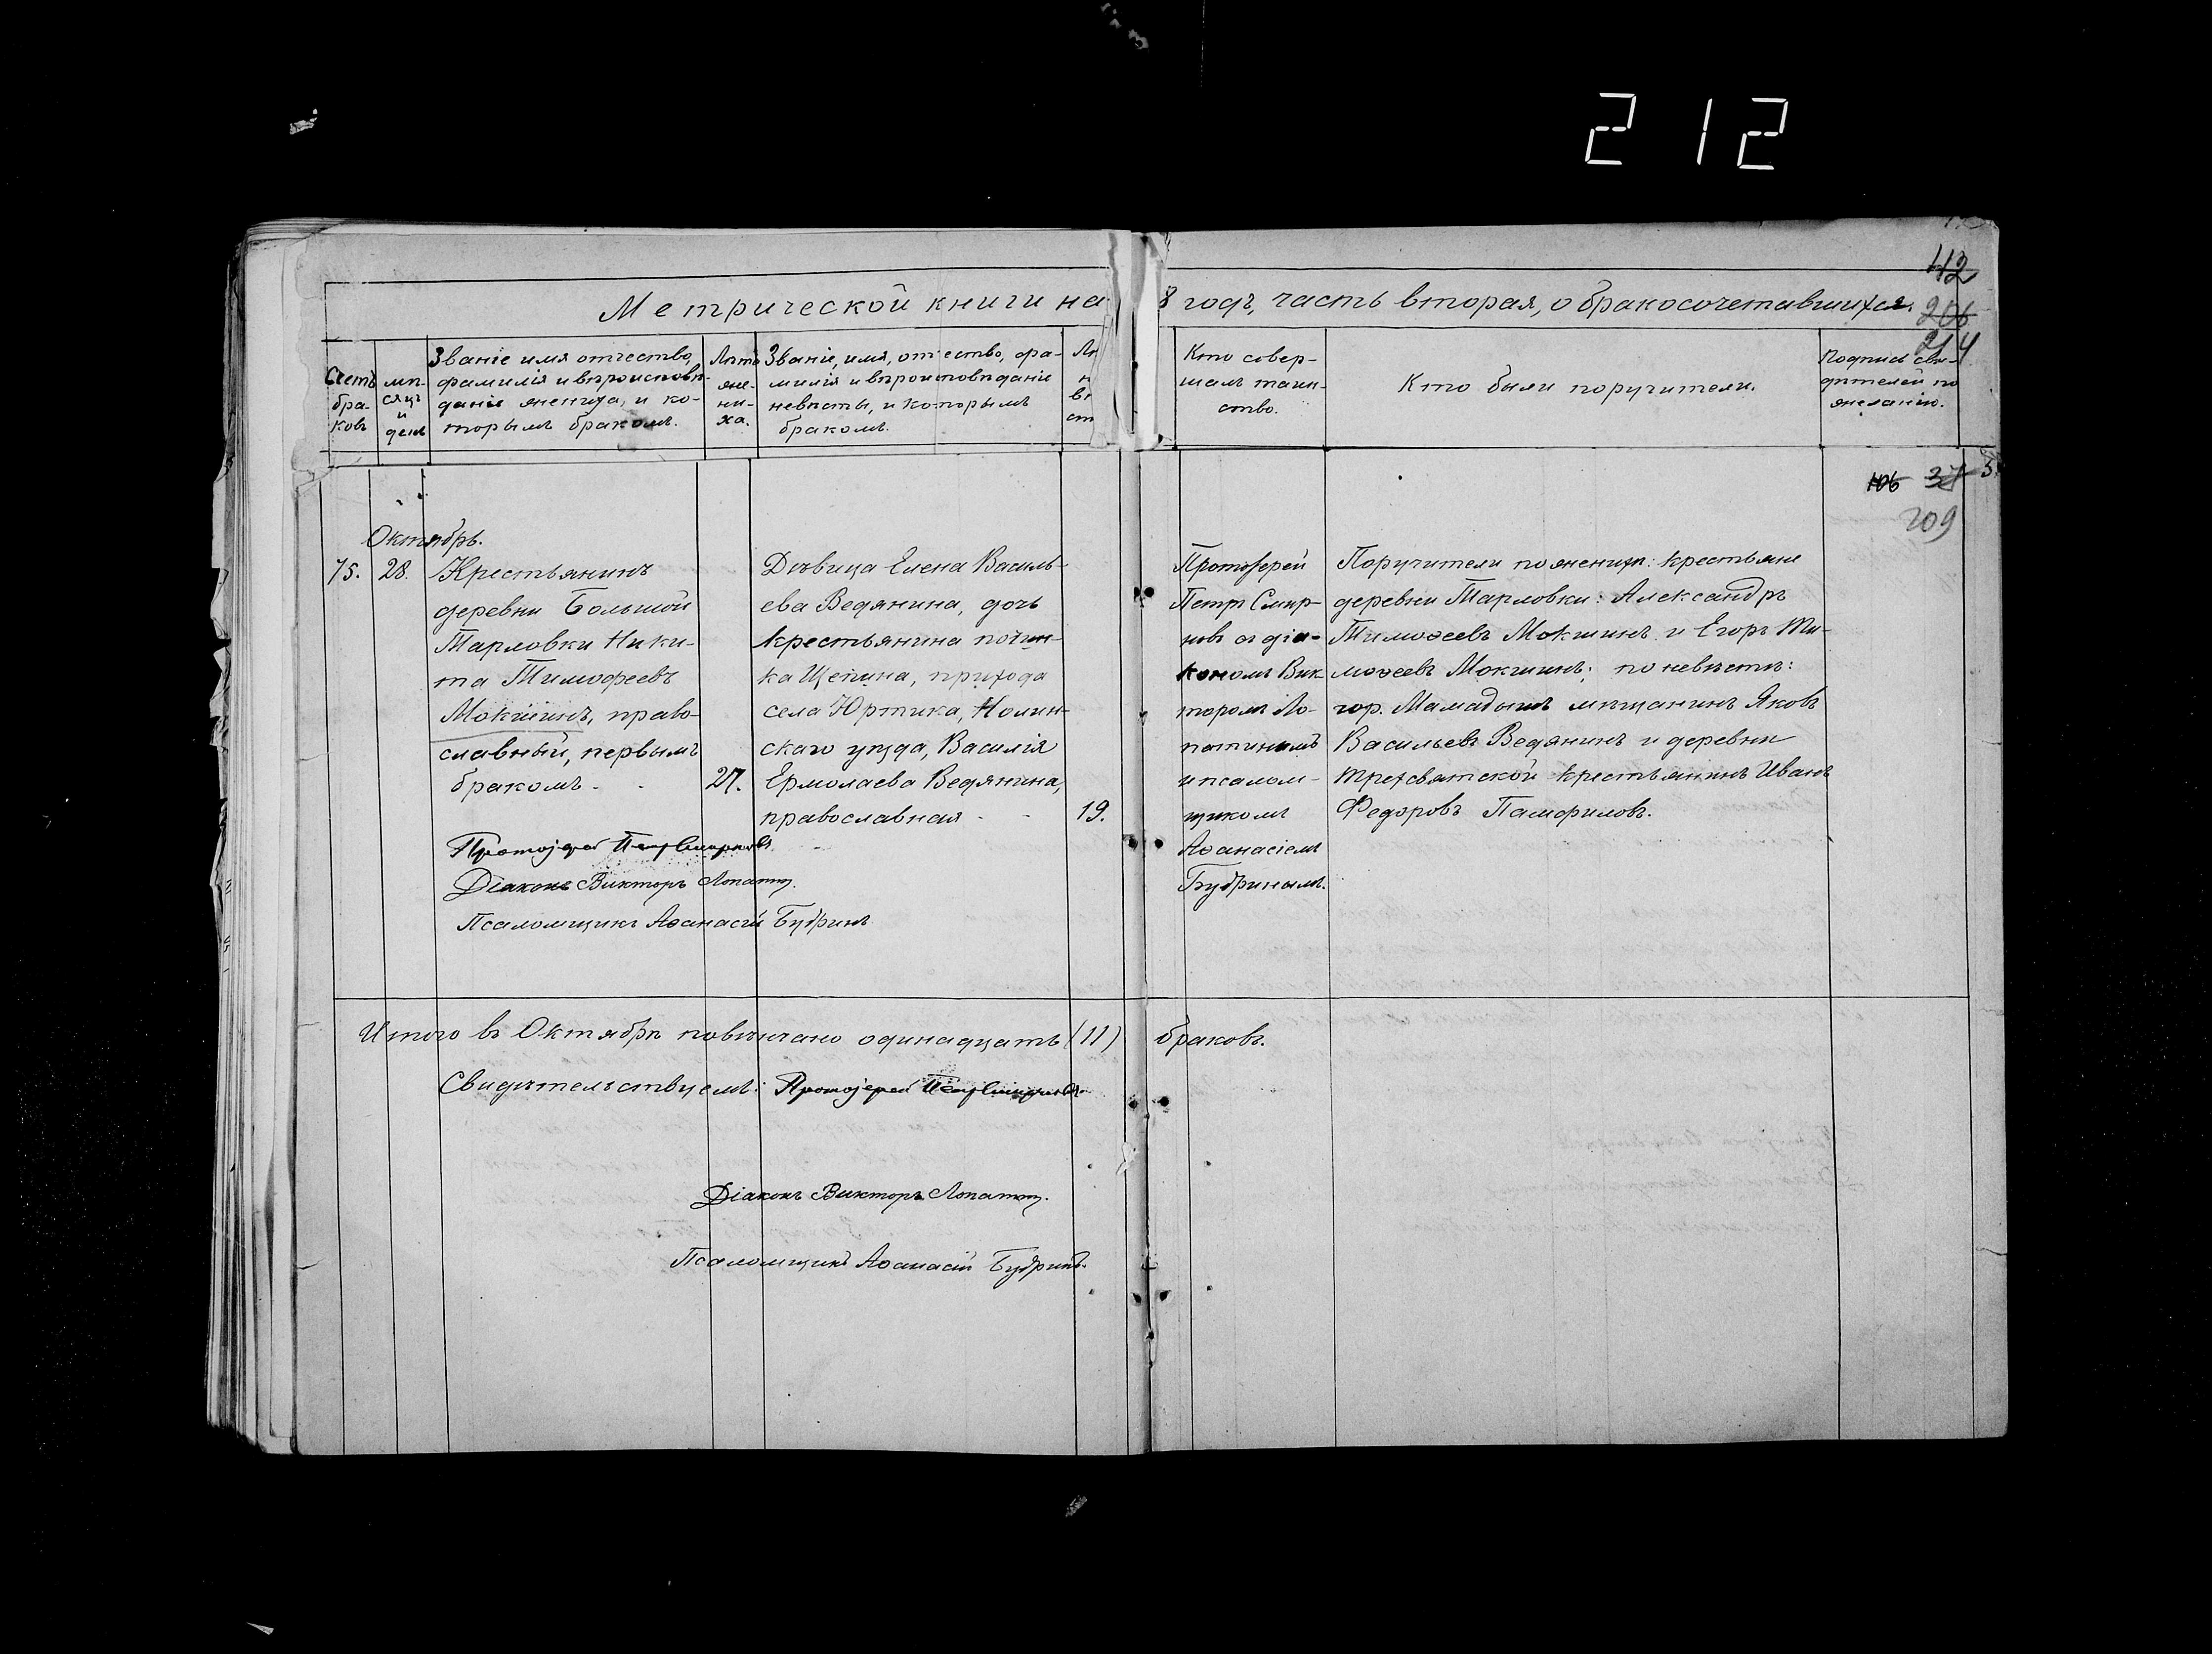 212
112
206
214
Метрической книги на 8 годъ, часть вторая, о бракосочетавшихся.
Счетъ браковъ
мѣсяцъ и день
Званіе имя отчество,
фамилія и вѣроисповѣ-
даніе жениха, и ко-
торымъ бракомъ.
Лѣта
жени-
ха.
Званіе, имя, отчество, фа-
милія и вѣроисповѣданіе
невѣсты, и которымъ
бракомъ.
Кто совер-
шалъ таин-
ство.
Кто были поручители.
Подпись сви-
дѣтелей по
желанію.
106 37
209
Октябрь.
75. 28.
Крестьянинъ
деревни Большой
Тарловки Ники-
та Тимофеевъ
Мокшинъ, право-
славный, первымъ
бракомъ.
27.
Дѣвица Елена Василь-
ева Ведянина, дочь
крестьянина почин-
ка Щепина, прихода
села Юртика, Нолин-
скаго уѣзда, Василія
Ермолаева Ведянина,
православная
19.
Протоіерей
Петръ Смир-
новъ съ діа-
кономъ Вик
торомъ Ло-
патинымъ
и псалом-
щикомъ
Аѳанасіемъ
Будринымъ.
Поручители по женихѣ: крестьяне
деревни Тарловки: Александръ
Тимоѳеевъ Мокшинъ и Егоръ Ти-
моѳеевъ Мокшинъ; по невѣстѣ:
гор. Мамадышъ мѣщанинъ Яковъ
Васильевъ Ведянинъ и деревни
Трехсвятской крестьянинъ Иванъ
Федоровъ Памфиловъ.
Протоіерей Петръ Смирновъ
Діаконъ Викторъ Лопатин.
Псаломщикъ Аѳанасій Будринъ
Итого въ Октябрѣ повѣнчано одинадцать (11) браковъ.
Свидѣтельствуемъ: Протоіерей Петръ Смирновъ
Діаконъ Викторъ Лопатин.
Псаломщикъ Аѳанасій Будринъ.